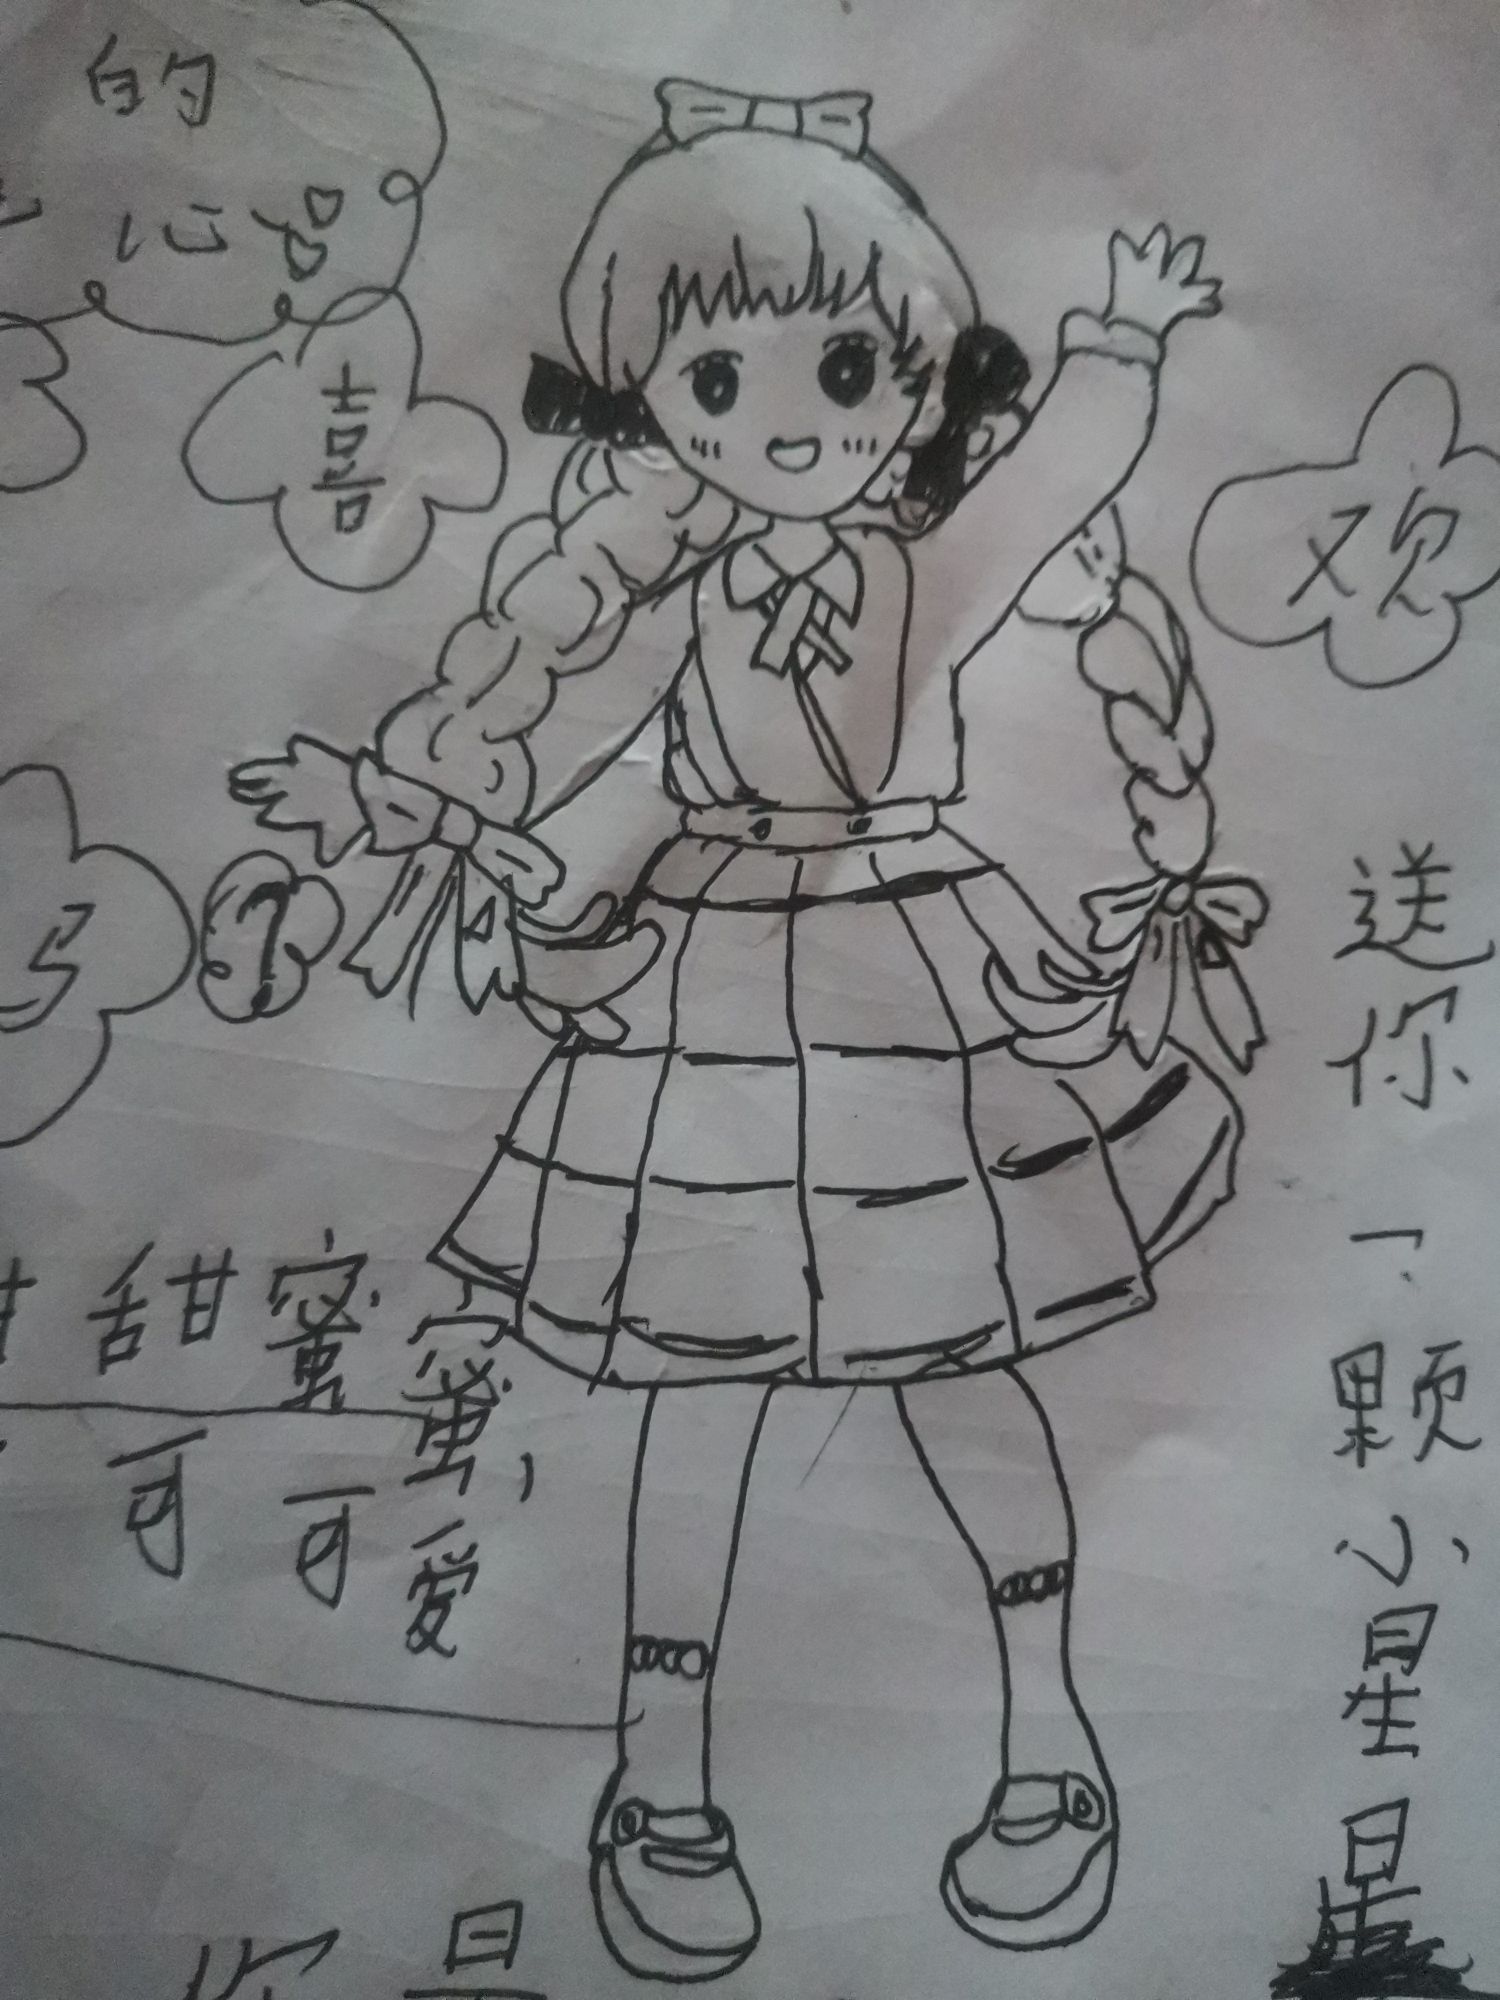 的
心
喜
欢
?
送你一颗小星星
甜蜜蜜,
可可爱
你是